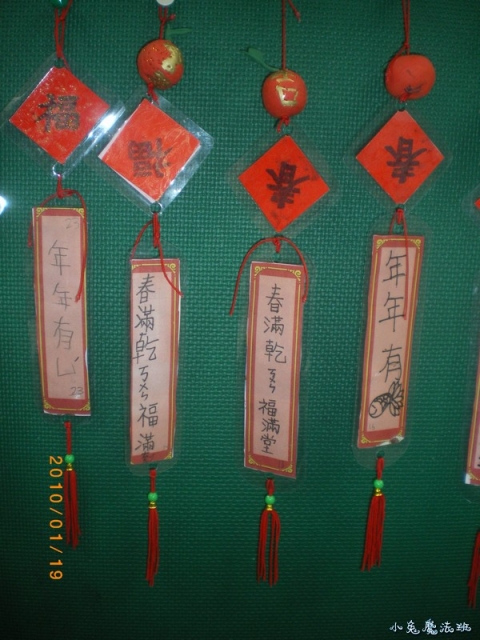 福
福
春
春
年年有ㄩˊ
23
春滿乾ㄎㄨㄣ福滿
春滿乾ㄎㄨㄣ福滿堂
年年有
2010/01/19
小兔魔法班